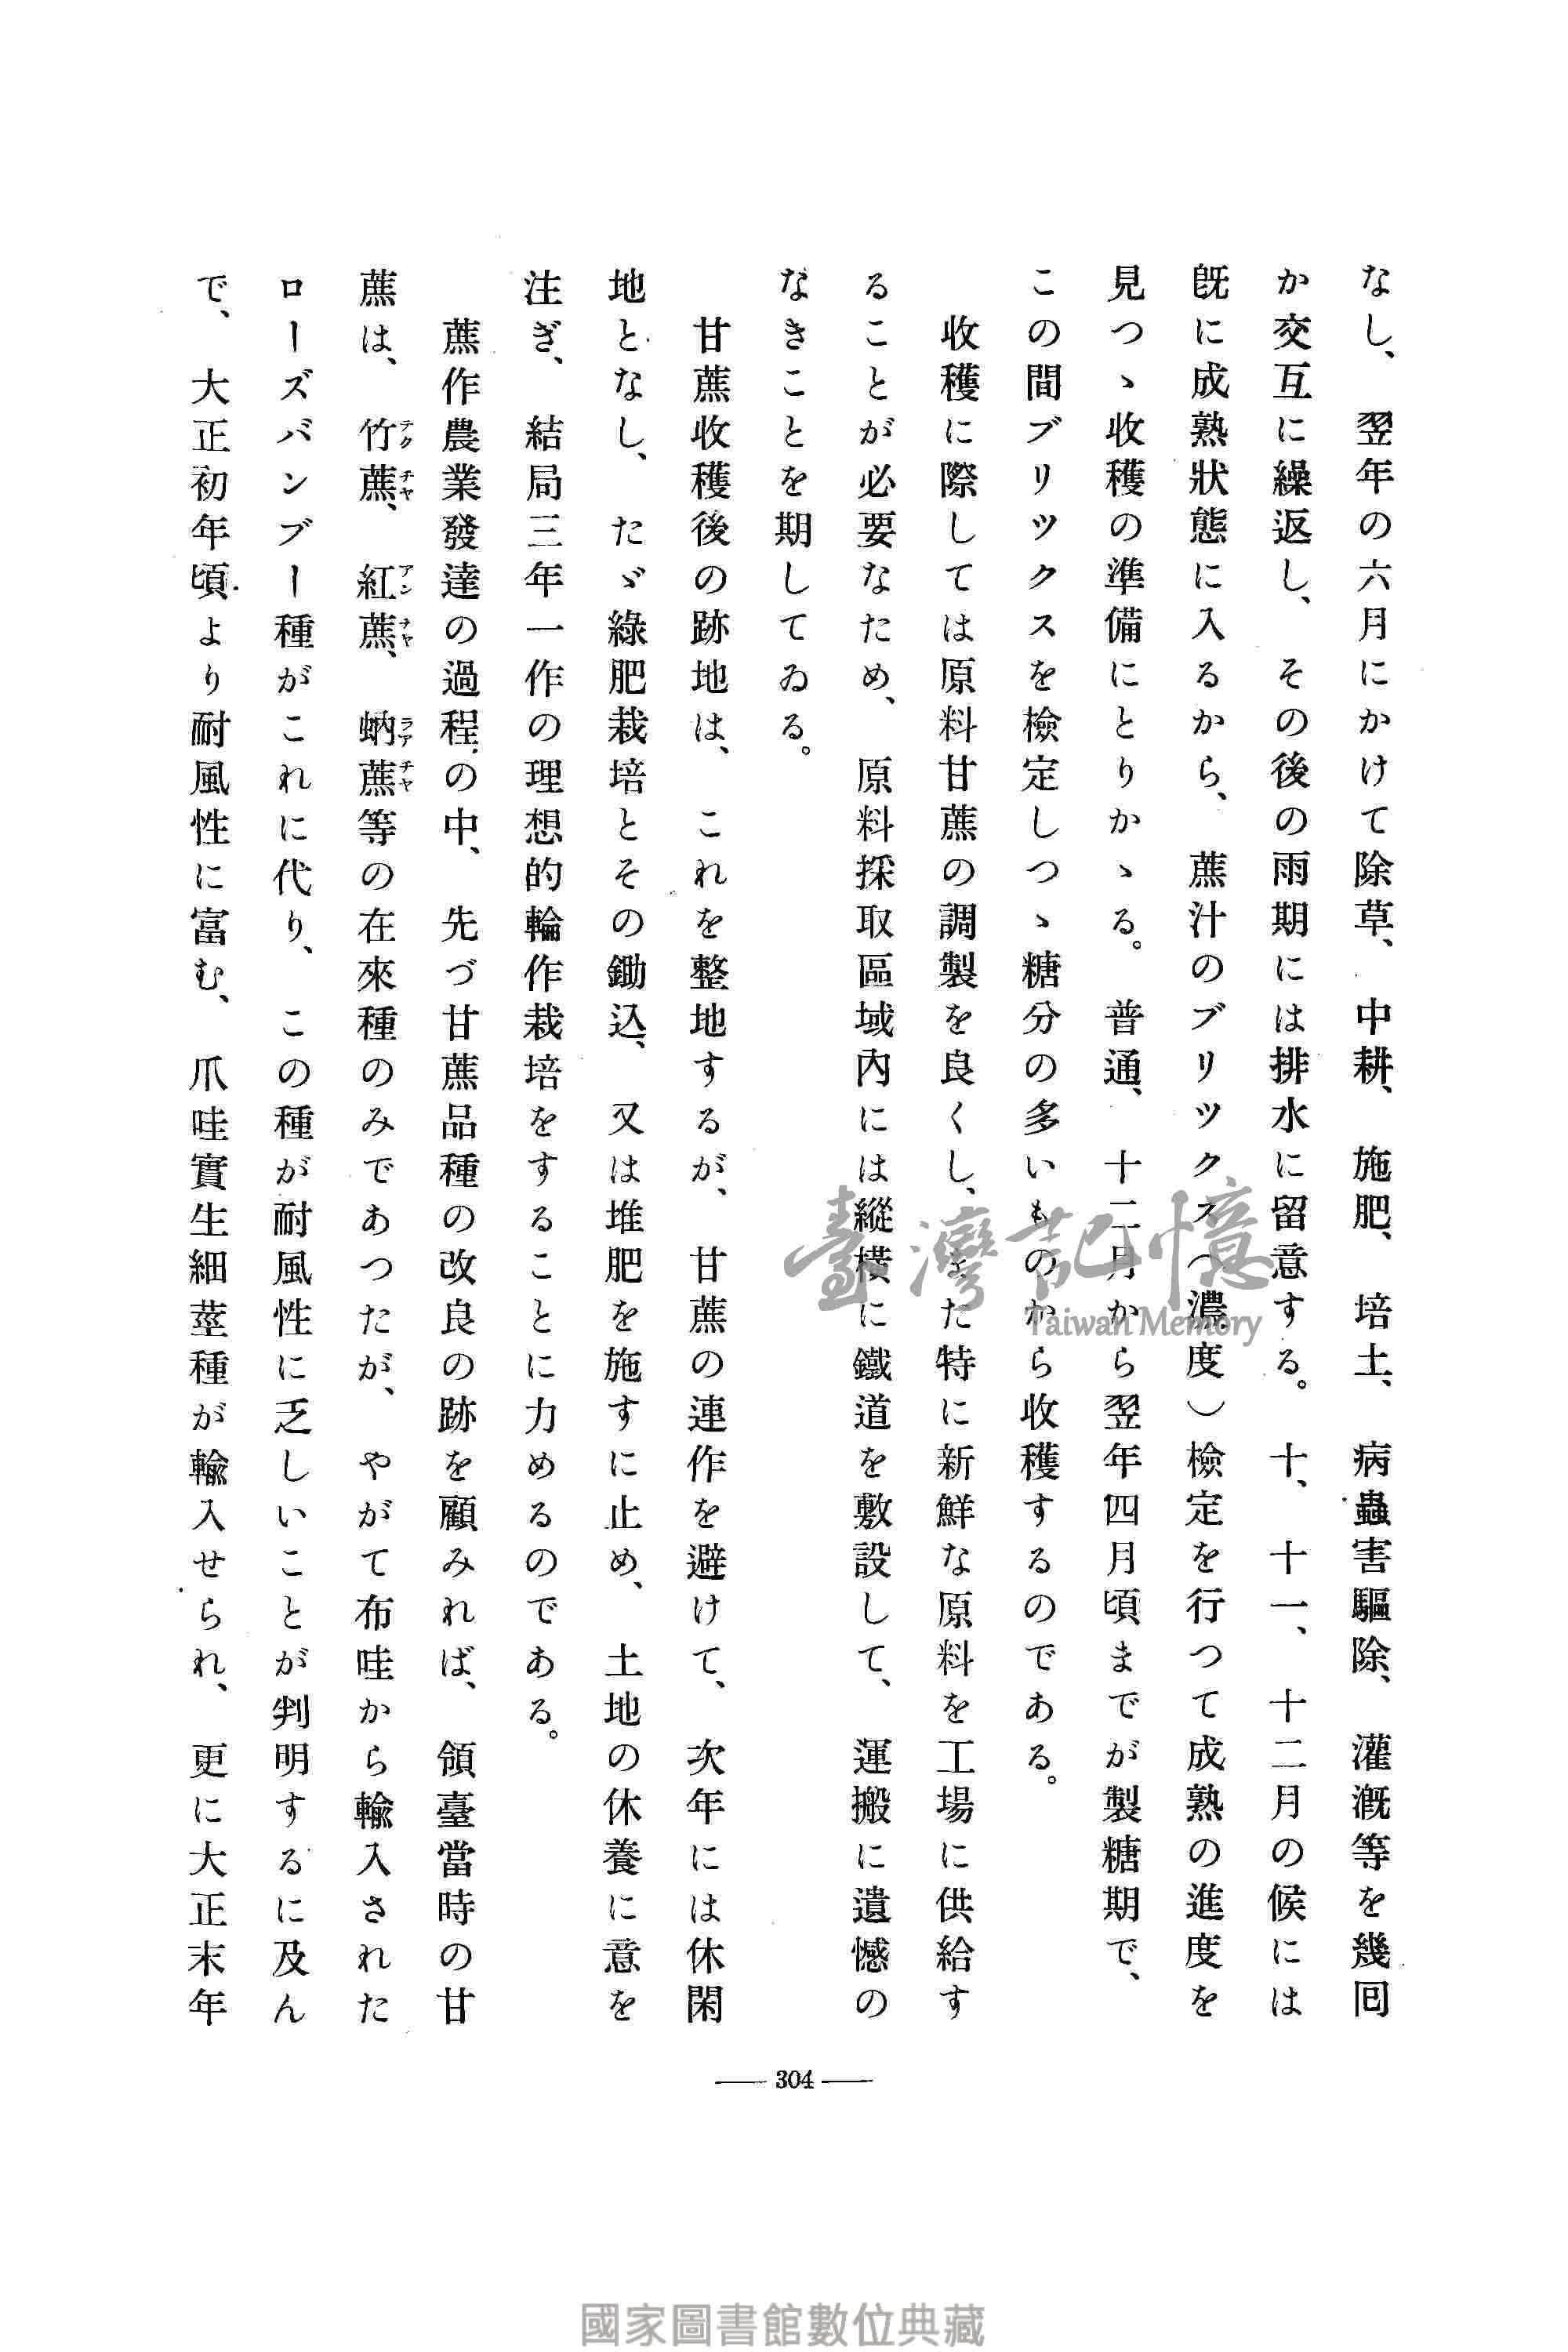 なし、翌年の六月にかけて除草、中耕、施肥、培土、病蟲害驅除、灌漑等を幾囘
か交互に繰返し、その後の雨期には排水に留意する。十、十一、十二月の候には
旣に成熟狀態に入るから、蔗汁のブリツクス（濃度）檢定を行つて成熟の進度を
見つゝ收穫の準備にとりかゝる。普通、十二月から翌年四月頃までが製糖期で、
この間ブリツクスを檢定しつゝ糖分の多いものから收穫するのである。
收穫に際しては原料甘蔗の調製を良くし、また特に新鮮な原料を工場に供給す
ることが必要なため、原料採取區域內には縱橫に鐵道を敷設して、運搬に遺憾の
なきことを期してゐる。
甘蔗收穫後の跡地は、これを整地するが、甘蔗の連作を避けて、次年には休閑
地となし、たゞ綠肥栽培とその鋤込、又は堆肥を施すに止め、土地の休養に意を
注ぎ、結局三年一作の理想的輪作栽培をすることに力めるのである。
蔗作農業發達の過程の中、先づ甘蔗品種の改良の跡を顧みれば、領臺當時の甘
蔗は、竹蔗、紅蔗、蚋蔗等の在來種のみであつたが、やがて布哇から輸入された
テクチヤ アンチヤ ラアチヤ
ローズバンブー種がこれに代り、この種が耐風性に乏しいことが判明するに及ん
で、大正初年頃より耐風性に富む、爪哇實生細莖種が輸入せられ、更に大正末年
304
臺灣記憶
Taiwan Memory
國家圖書館數位典藏